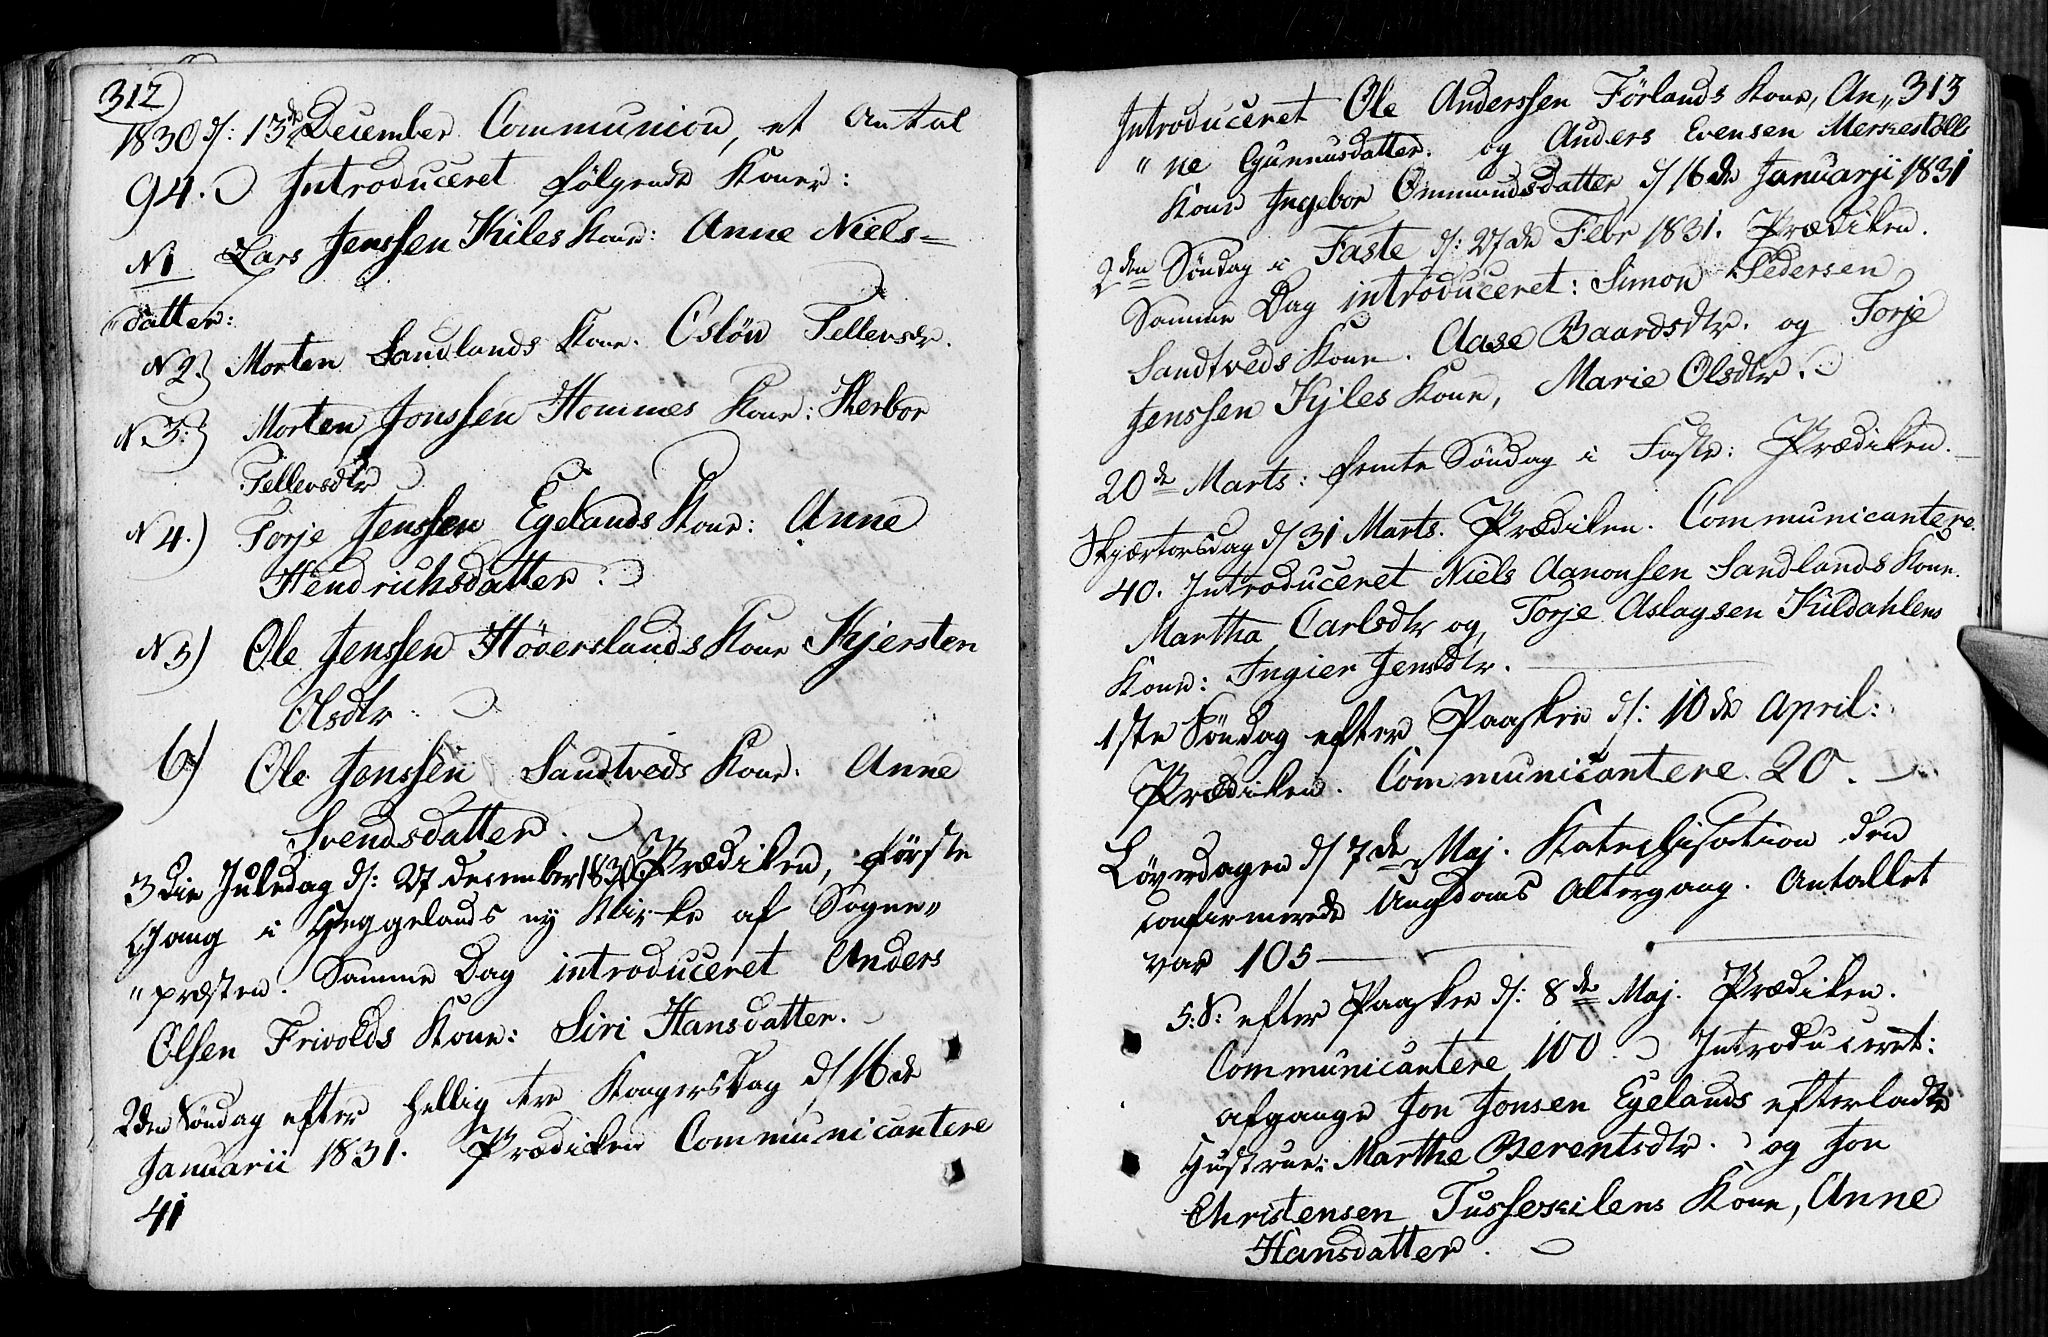 312
1830 d/: 13de December Communion, et Antal
94. Introduceret følgende Koner:
N1 Lars Jenssen Kiles Kone: Anne Niels=
"datter:
N2.) Morten Sandlands Kone. Osløv Tellevsdr.
N.3:) Morten Jonssen Hommes Kone: Herbor
Tellevsdtr
N 4.) Torje Jenssen Egelands Kone: Anne
Hendrichsdatter.
N5) Ole Jenssen Høverslands Kone Kjersten
Olsdtr.
6) Ole Jenssen Sandtveds Kone. Anne
Svendsdatter.
3die Juledag d/: 27 december 1830 Prædiken, første
Gang i Heggelands ny Kirke af Sogne"
"præsten. Samme Dag introduceret Anders
Olsen Frivolds Kone: Siri Hansdatter.
2den Søndag efter hellig tre Kongersdag d/16de
Januarii 1831. Prædiken Communicantere
41
313
Introduceret Ole Anderssen Førlands Kone, An"
"ne Gunnusdatter. og Anders Evensen
Kone Ingebor Ommundsdatter d/16de Januarji 1831
2den Søndag i Faste d/: 27de Febr 1831. Prædiken.
Samme Dag introduceret: Simon Pedersen
Sandtveds Kone. Aase Baardsdtr. og Torje
Jenssen Kyles Kone, Marie Olsdtr.
20de Marts: femte Søndag i Faste: Prædiken.
Skjærtorsdag d/31 Marts. Prædiken. Communicantere
40. Introduceret Niels Aanonsen Sandlands Kone.
Martha Carlsdtr og Torje Aslagsen Kuldahlens
Kone: Ingier Jensdtr.
1ste Søndag efter Paaske d/: 10de April:
Prædiken. Communicantere 20.
Løverdagen d/7de Maj. Katechisation den
confirmerede Ungdoms Altergang. Antallet
var 105
5:S: efter Paaske d/: 8de Maj. Prædiken.
Communicantere 100. Introduceret:
afgangne Jon Jonsen Egelands efterladte
Hustrue: Marthe Berentsdtr. og Jon
Christensen Kone, Anne
Hansdatter.